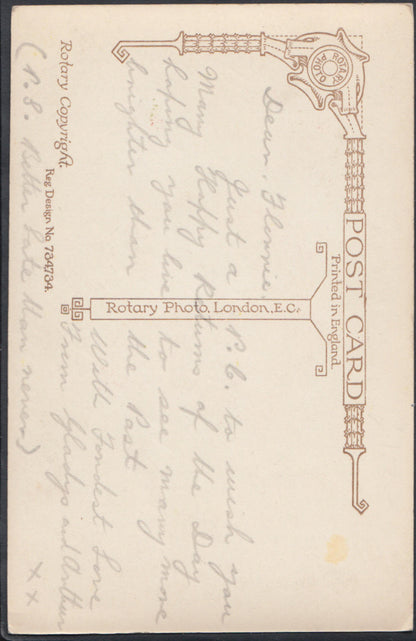 POST CARD
Printed in England.
ROTARY PHOTO
Rotary Photo, London, E.C.
Rotary Copyright.
Reg Design No 734734.
Dear Florrie
Just a P.C. to wish you
Many Happy Returns of the Day
hoping you live to see many more
brighter than the Past
With Fondest Love
From Gladys and Arthur
(P.S. Better Late than never) x x